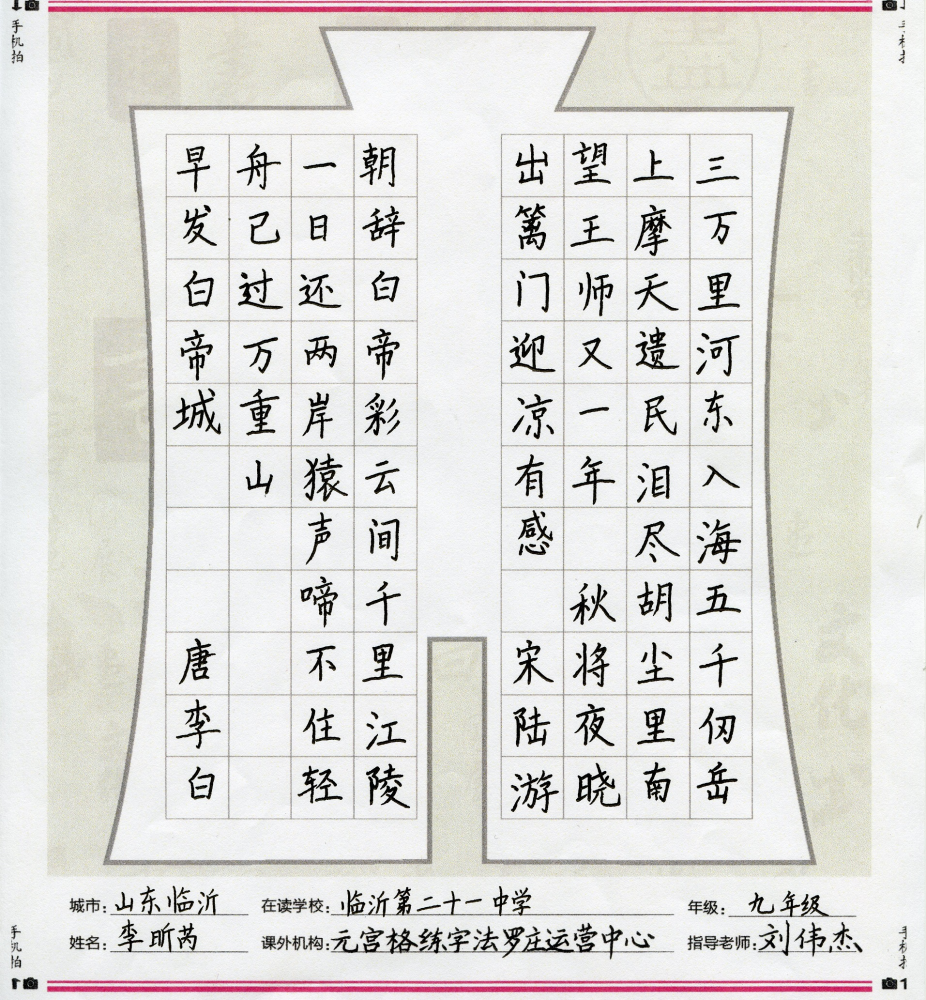 手机拍
手机拍
三万里河东入海五千仞岳
上摩天遗民泪尽胡尘里南
望王师又一年 秋将夜晓
出篱门迎凉有感 宋陆游
朝辞白帝彩云间千里江陵
一日还两岸猿声啼不住轻
舟已过万重山
早发白帝城 唐李白
城市：山东临沂 在读学校：临沂第二十一中学 年级：九年级
姓名：李昕芮 课外机构：元宫格练字法罗庄运营中心 指导老师：刘伟杰
手机拍
手机拍